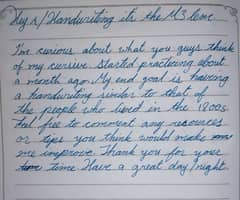 Hey r/Handwriting its the M3 leme.
I'm curious about what you guys think
of my cursive. Started practicing about
a month ago. My end goal is having
a handwriting similar to that of
the people who lived in the 1800s.
Feel free to comment any resources
or tips you think would make
me improve. Thank you for your
time. Have a great day/night.